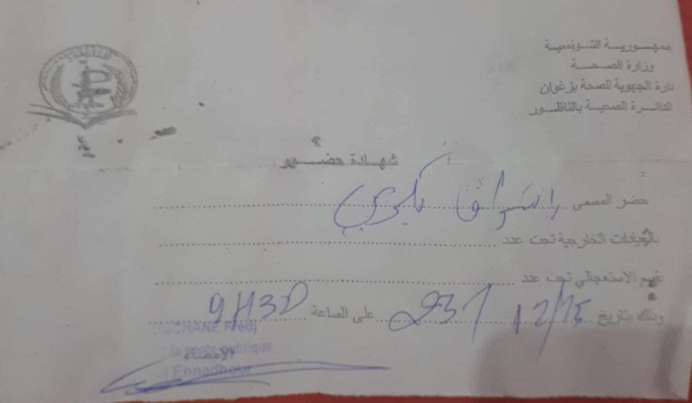 جمهـــوريـــة التـــونسيـــة
وزارة الصحـــة
دارة الجهوية للصحة بزغوان
الدائـــرة الصحيـة بالناظـــور
شهـادة حضـــور
حضر المسمى
بالعيادات الخارجية تحت عدد
بقسم الاستعجالي تحت عدد
وذلك بتاريخ 23/12/15 على الساعة 9H30
الإمضاء
OUCHANE Fredj
la santé publique
Ennadhour